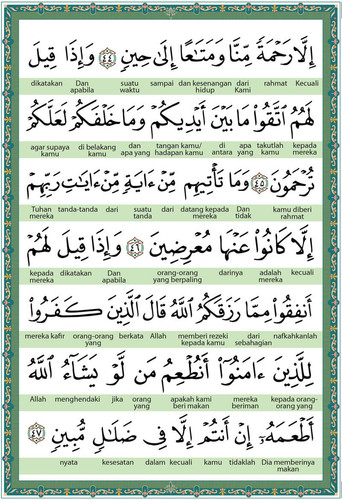 إِلَّا رَحْمَةً مِّنَّا وَمَتَـٰعًا إِلَىٰ حِينٍ ﴿٤٤﴾ وَإِذَا قِيلَ
Kecuali rahmat dari Kami dan kesenangan hidup sampai suatu waktu Dan apabila dikatakan
لَهُمُ ٱتَّقُوا۟ مَا بَيْنَ أَيْدِيكُمْ وَمَا خَلْفَكُمْ لَعَلَّكُمْ
kepada mereka takutlah kamu apa yang di antara tangan kamu/ hadapan kamu dan apa yang di belakang kamu agar supaya kamu
تُرْحَمُونَ ﴿٤٥﴾ وَمَا تَأْتِيهِم مِّنْ ءَايَةٍ مِّنْ ءَايَـٰتِ رَبِّهِمْ
kamu diberi rahmat Dan tidak datang kepada mereka dari suatu tanda dari tanda-tanda Tuhan mereka
إِلَّا كَانُوا۟ عَنْهَا مُعْرِضِينَ ﴿٤٦﴾ وَإِذَا قِيلَ لَهُمْ
kecuali adalah mereka darinya orang-orang yang berpaling Dan apabila dikatakan kepada mereka
أَنفِقُوا۟ مِمَّا رَزَقَكُمُ ٱللَّهُ قَالَ ٱلَّذِينَ كَفَرُوا۟
nafkahkanlah dari sebahagian memberi rezeki kepada kamu Allah berkata orang-orang yang mereka kafir
لِلَّذِينَ ءَامَنُوٓا۟ أَنُطْعِمُ مَن لَّوْ يَشَآءُ ٱللَّهُ
kepada orang-orang yang mereka beriman apakah kami beri makan orang yang jika menghendaki Allah
أَطْعَمَهُۥٓ إِنْ أَنتُمْ إِلَّا فِى ضَلَـٰلٍ مُّبِينٍ ﴿٤٧﴾
Dia memberinya makan tidaklah kamu kecuali dalam kesesatan nyata